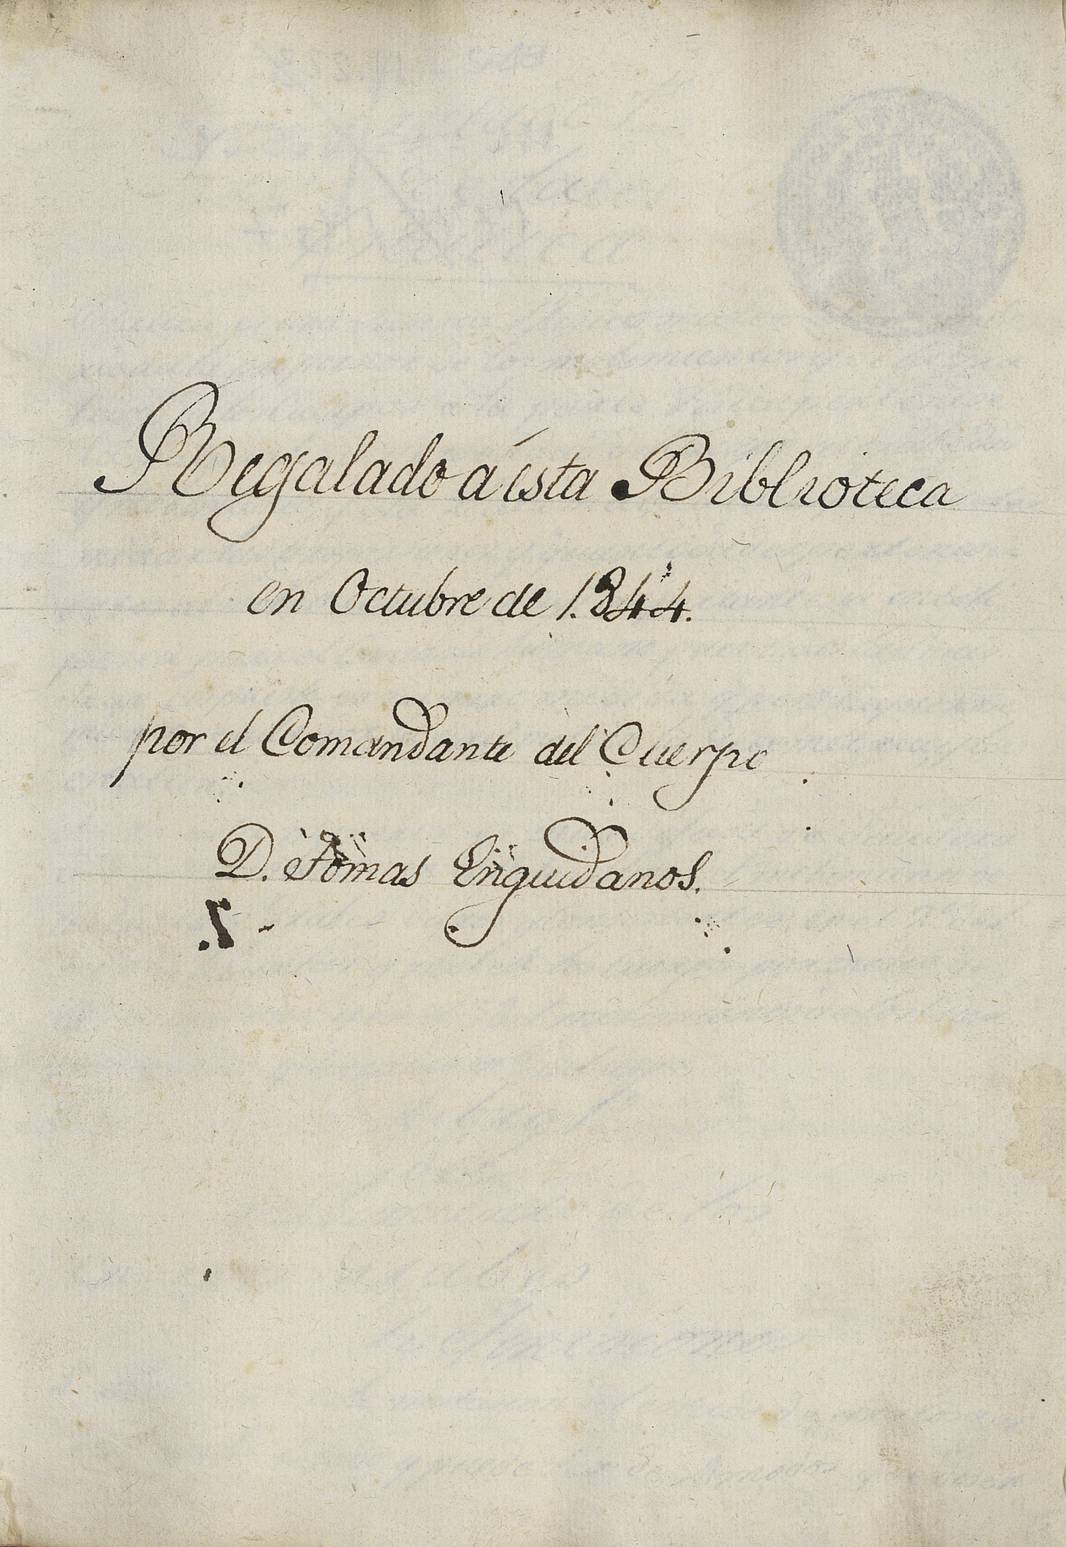 Regalado a ésta Biblioteca
en Octubre de 1.844.
por el Comandante del Cuerpo
D. Tomas Enguidanos.